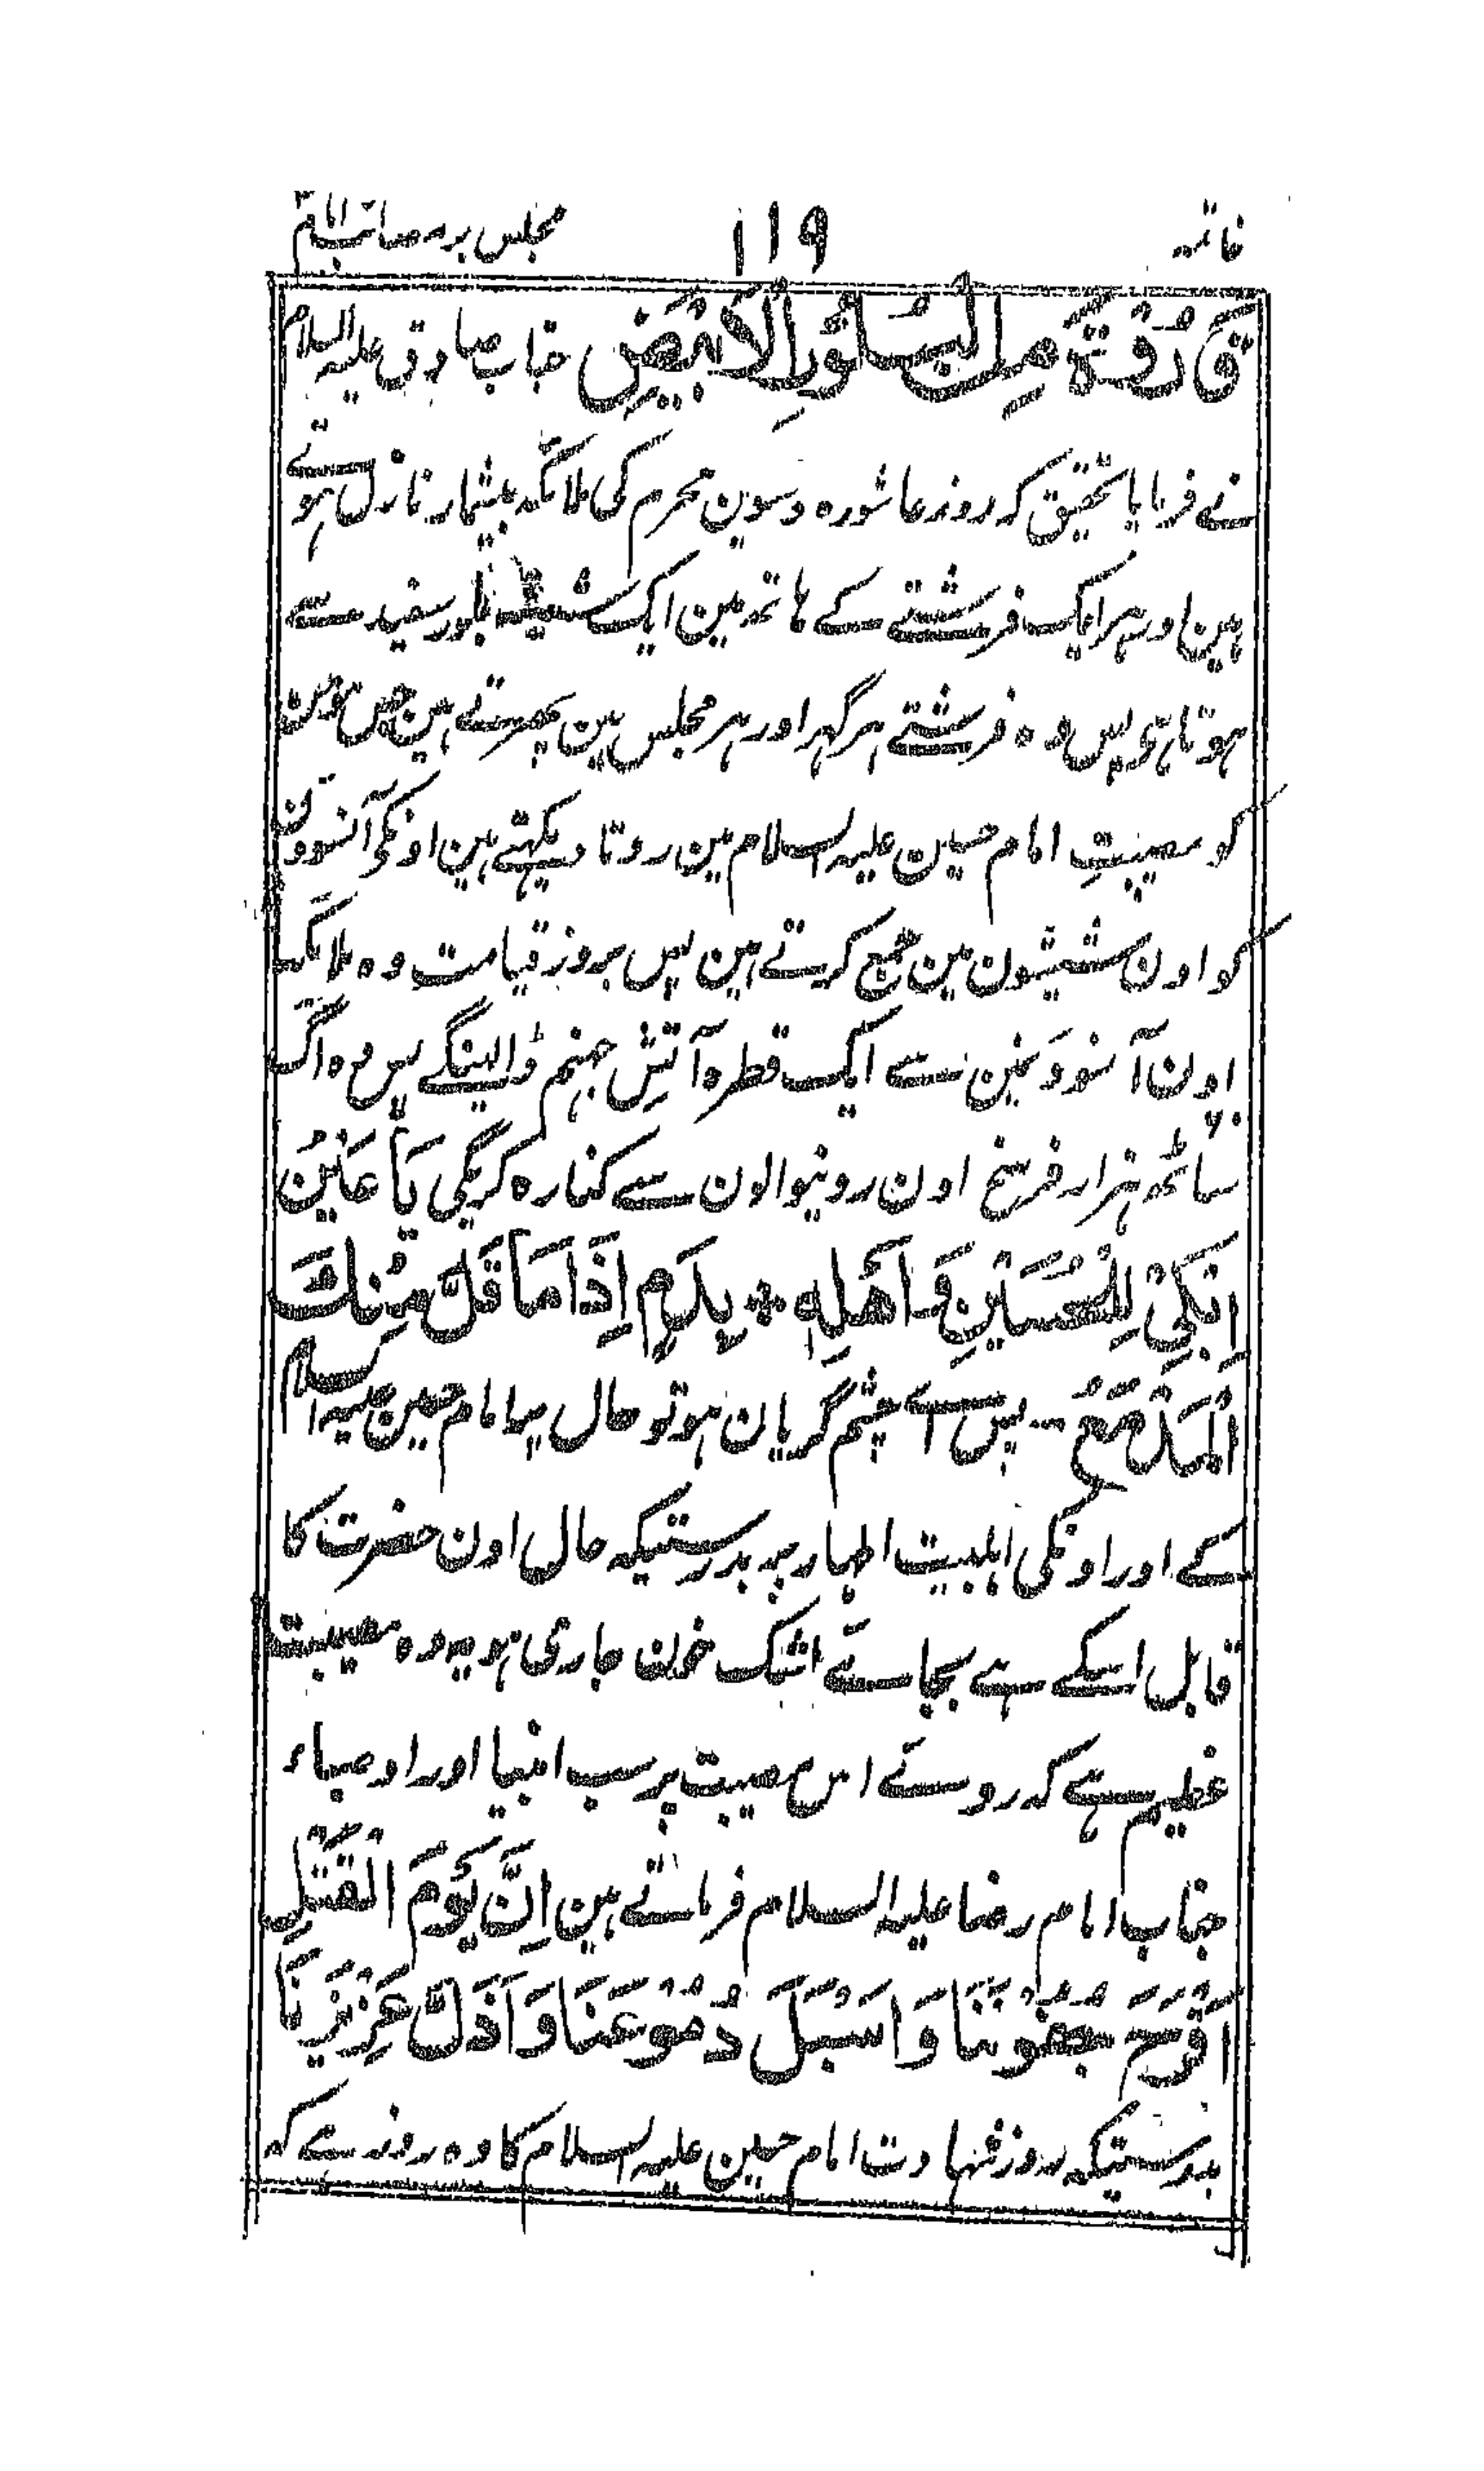 خاتمہ ١١٩ مجلس بر مصائب امام
قَارُوْرَةٌ مِنَ الْبَلُّوْرِ الْاَبْيَضِ جناب صادق علیہ السلام
نے فرمایا بتحقیق کہ روز عاشورہ دسوین محرم کی ملائکہ بیشمار نازل ہوتے
ہین اور ہر ایک فرشتے کے ہاتھ مین ایک شیشہ بلور سفید سے
ہوتا ہی پس وہ فرشتے ہر گہر اور ہر مجلس مین پھرتے ہین جس مومن
کو مصیبتِ امام حسین علیہ السلام مین روتا دیکہتے ہین اونکی آنسوون
کو اون شیشون مین جمع کرتے ہین پس بروز قیامت وہ ملائکہ
اون آنسوونمین سے ایک قطرہ آتشِ جہنم پر ڈالینگے پس وہ آگ
ساٹھ ہزار فرسخ اون رونیوالون سے کنارہ کریگی يَا عَيْنُ
اِبْكِيْ لِلْحُسَيْنِ وَ اَهْلِهِ ٭ بِدَمٍ اِذَا مَا قَلَّ مِنْكَ
الْمَدْمَعُ پس اے چشم گریان ہو تو حال پر امام حسین علیہ السلام
کے اور اونکی اہلبیت اطہار پر بدرستیکہ حال اون حضرت کا
قابل اسکے ہے بجاے اشک خون جاری ہو یہ وہ مصیبت
عظیم ہے کہ روے اس مصیبت پر سب انبیا اور اوصیاء
جناب امام رضا علیہ السلام فرماتے ہین اِنَّ يَوْمَ الْقَتْلِ
اَقْرَحَ جُفُوْنَنَا وَ اَسْبَلَ دُمُوْعَنَا وَ اَذَلَّ عَزِيْزَنَا
بدرستیکہ روز شہادت امام حسین علیہ السلام کا وہ روز ہے کہ